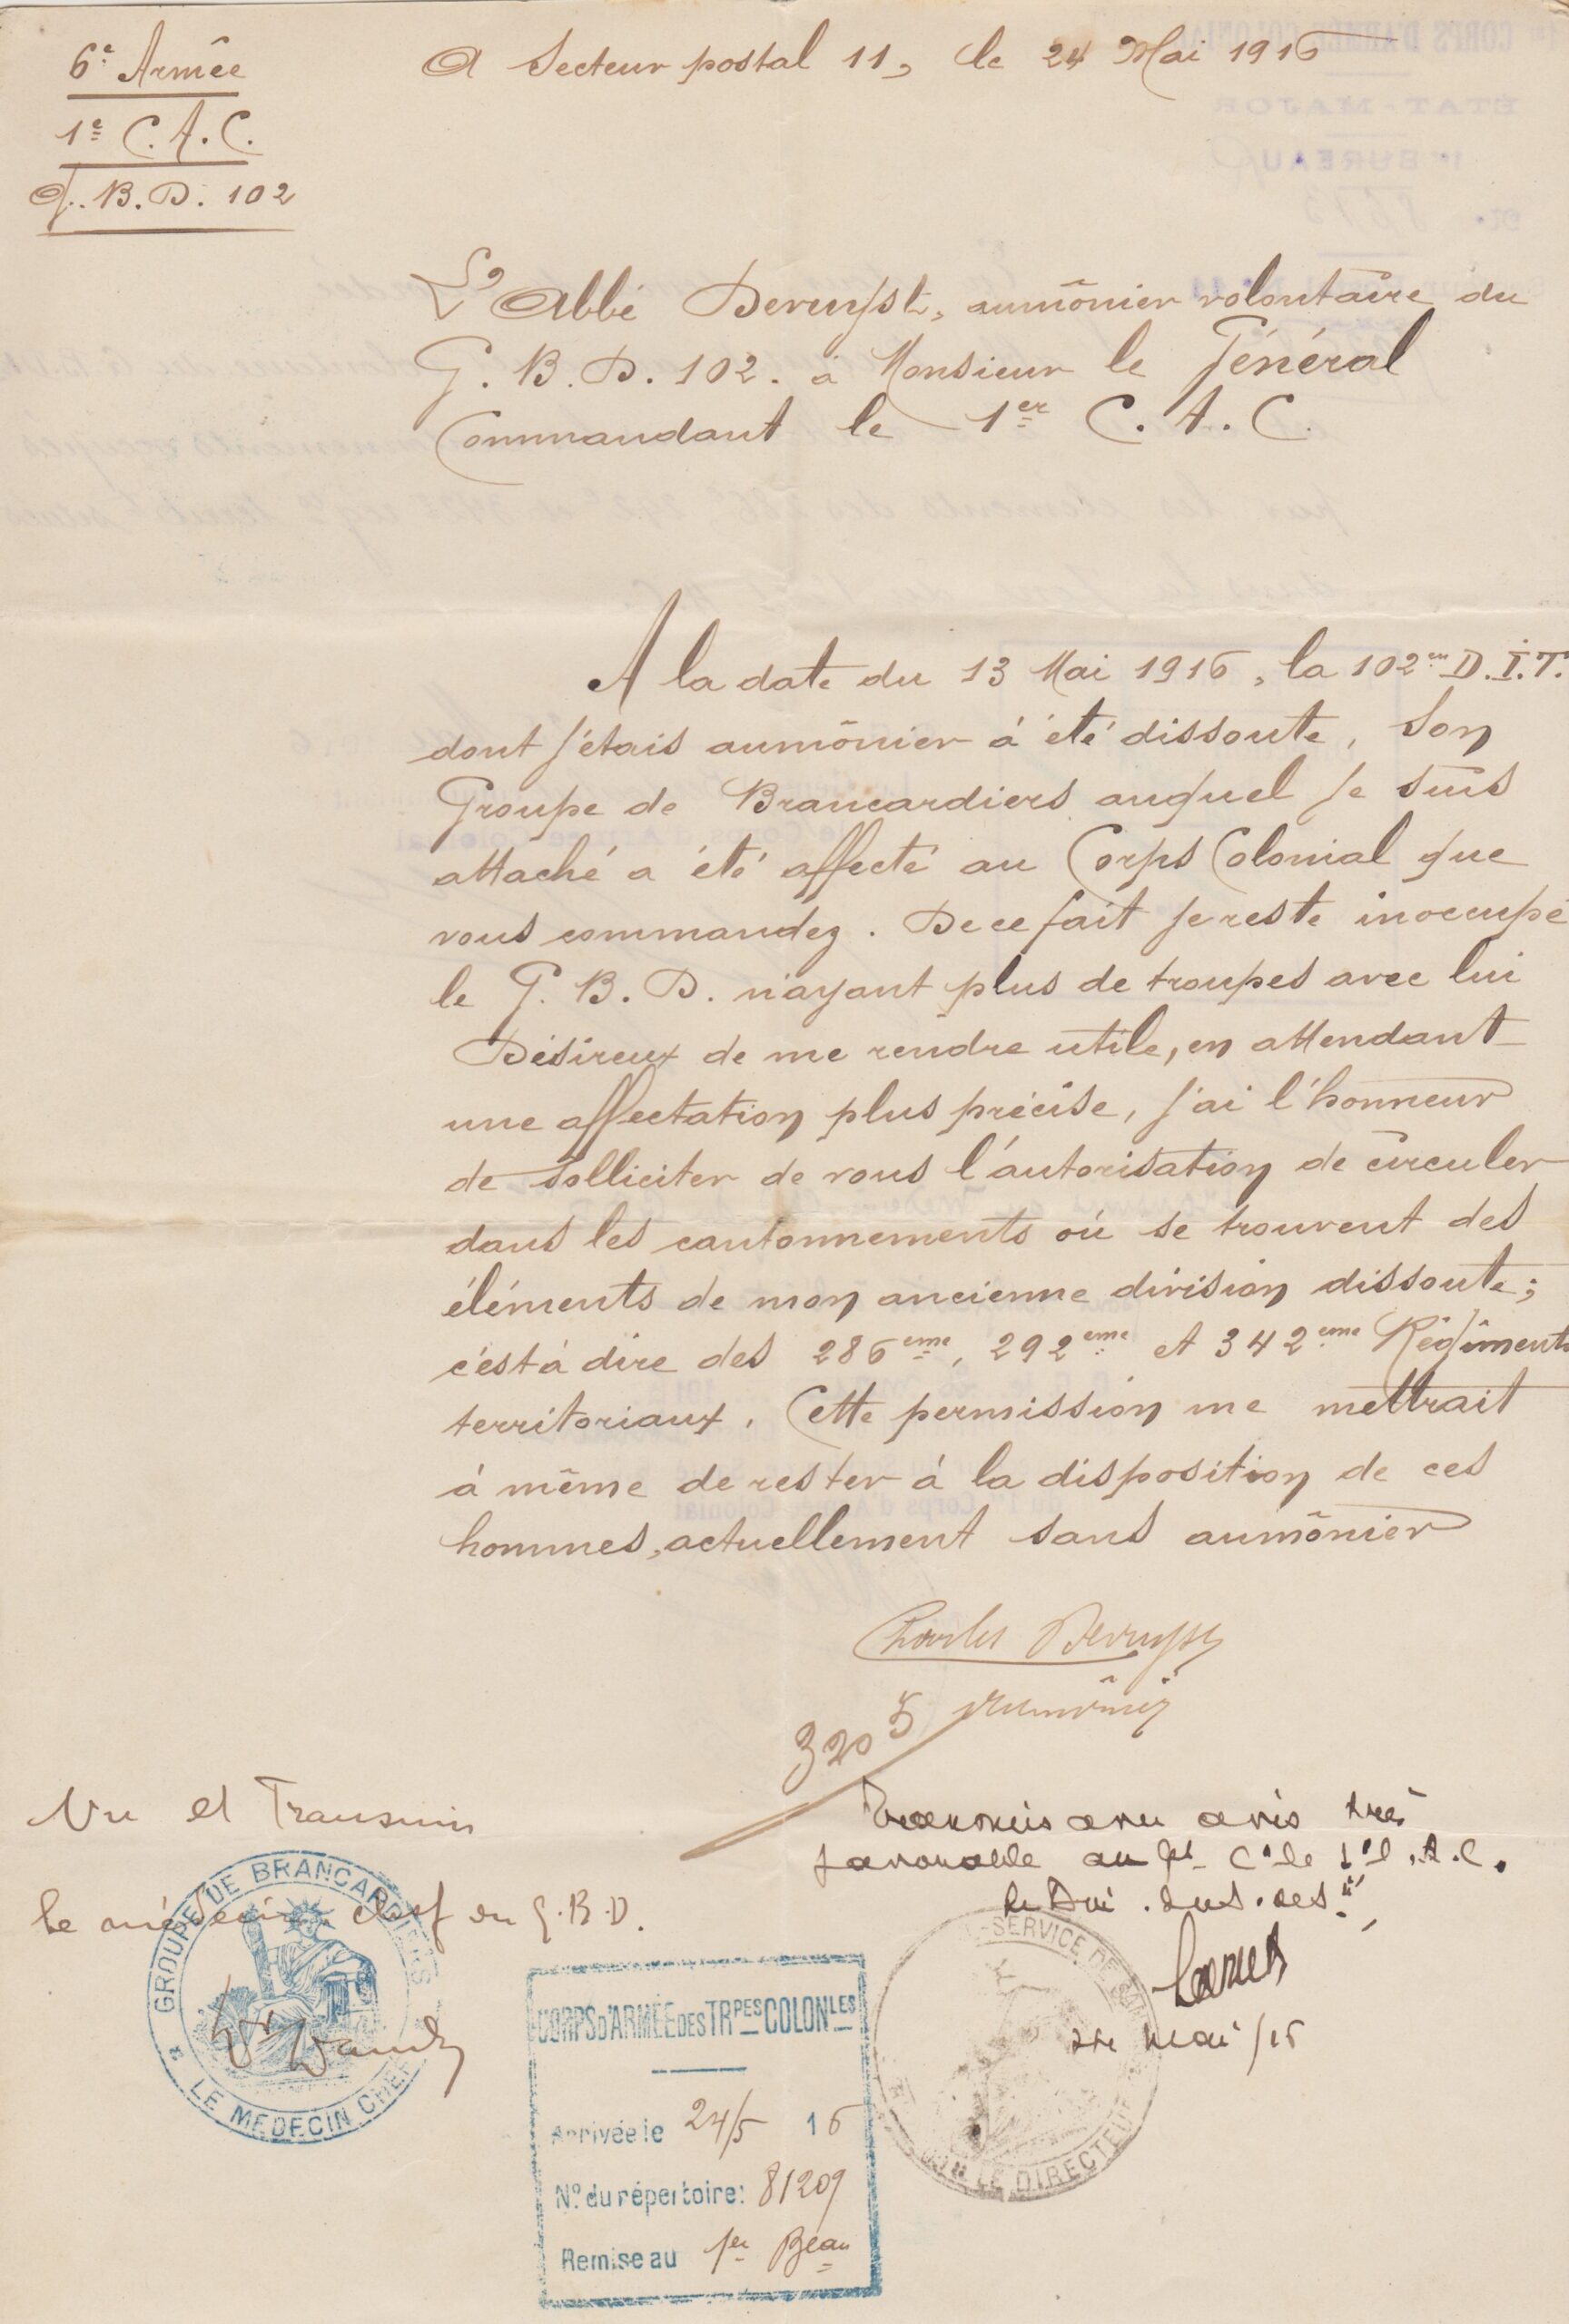 6e Armée
1e C. A. C.
G. B. D. 102
A Secteur postal 11, le 24 Mai 1916
L'Abbé Deruyst, aumônier volontaire du
G. B. D. 102. à Monsieur le Général
Commandant le 1er C. A. C.
A la date du 13 Mai 1916, la 102em D.I.T.
dont j'étais aumônier à été dissoute, Son
Groupe de Brancardiers auquel je suis
attaché a été affecté au Corps Colonial que
vous commandez. De ce fait je reste inoccupé
le G. B. D. n'ayant plus de troupes avec lui
Désireux de me rendre utile, en attendant
une affectation plus précise, j'ai l'honneur
de solliciter de vous l'autorisation de circuler
dans les cantonnements où se trouvent des
éléments de mon ancienne division dissoute;
c'est à dire des 286eme, 292eme et 342eme Régiments
territoriaux. Cette permission me mettrait
à même de rester à la disposition de ces
hommes, actuellement sans aumônier
Charles Deruyst
aumônier
3205
Vu et Transmis
Le médecin chef du G.B.D.
GROUPE DE BRANCARDIERS
LE MEDECIN CHEF
Transmis avec avis très
favorable au Gl Ct le 1er C.A.C.
le Dir.
24 mai/16
SERVICE DE
LE DIRECTEUR
CORPS D'ARMÉE DES TRPES COLONLES
Arrivée le 24/5 16
No. du répertoire: 81209
Remise au 1er Beau